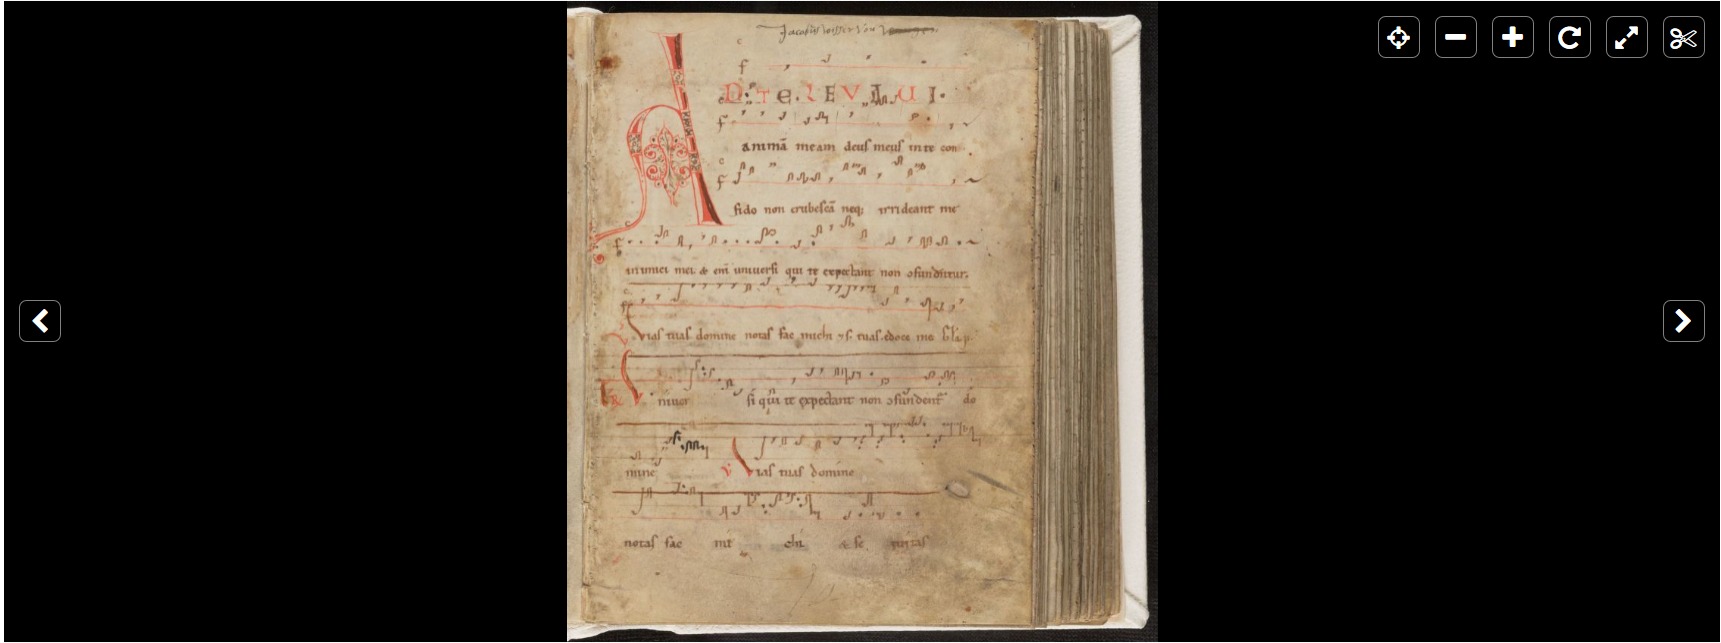 Jacobus Visser Von
AD TE LEVAVI
animā meam deus meus in te con
fido non erubescā neq; irrideant me
inimici mei & eni uniuersi qui te expectant non ɔfundētur.
Vias tuas domine notas fac michi & se tuas edoce me
Vniuer si qui te expectant non ɔfundent do
mine V Vias tuas domine
notas fac mi chi & se mitas